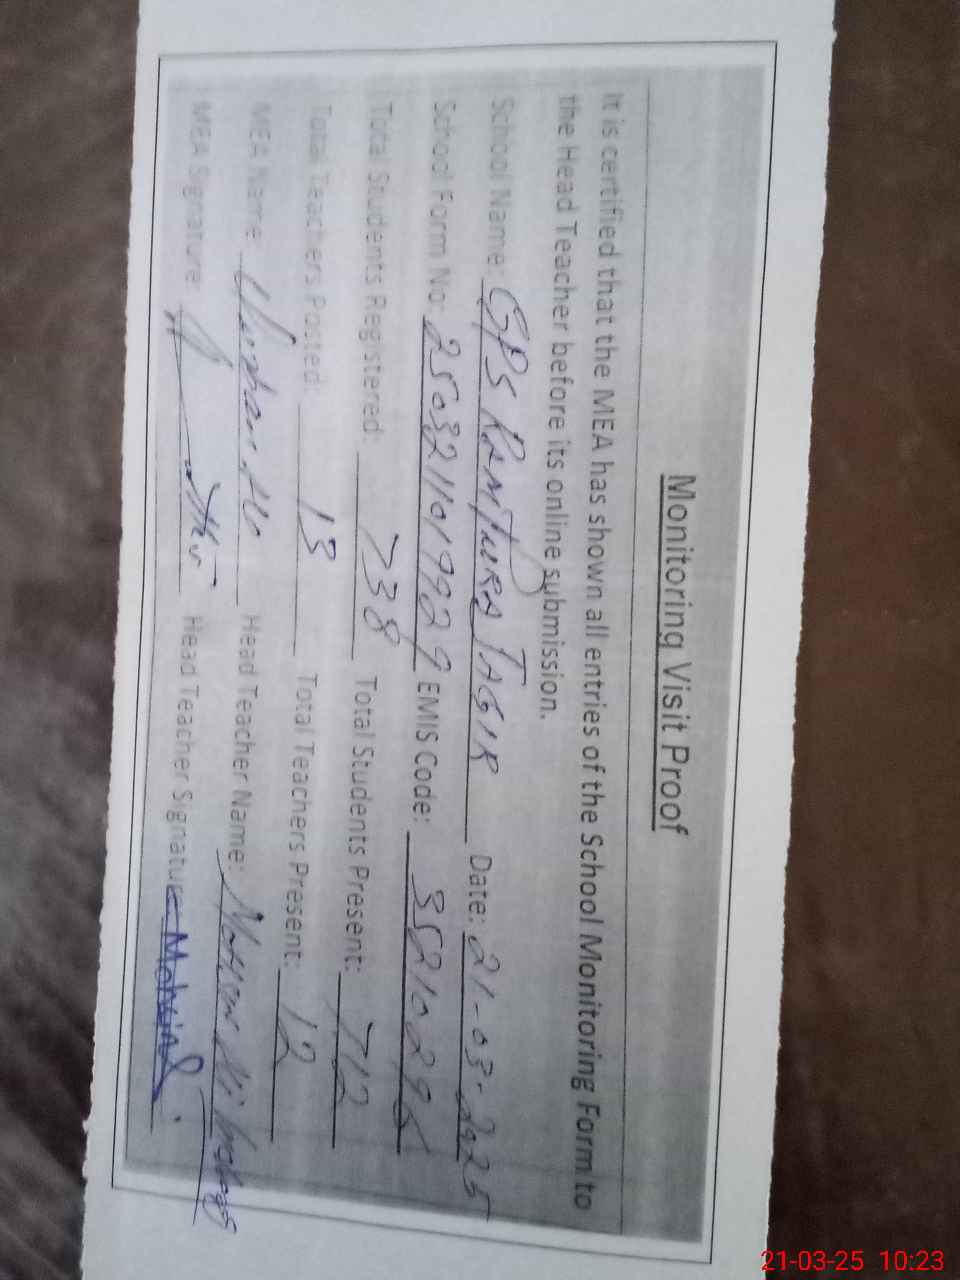 Monitoring Visit Proof
It is certified that the MEA has shown all entries of the School Monitoring Form to
the Head Teacher before its online submission.
School Name: GPS RAMPURA JAGIR Date: 21-03-2025
School Form No: 2503211019929 EMIS Code: 35210295
Total Students Registered: 738 Total Students Present: 712
Total Teachers Posted: 13 Total Teachers Present: 12
MEA Name: Head Teacher Name:
MEA Signature: Head Teacher Signature:
21-03-25 10:23